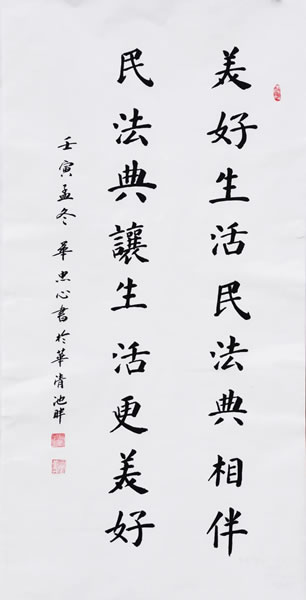 美好生活民法典相伴
民法典讓生活更美好
壬寅孟冬 華忠心書於華清池畔